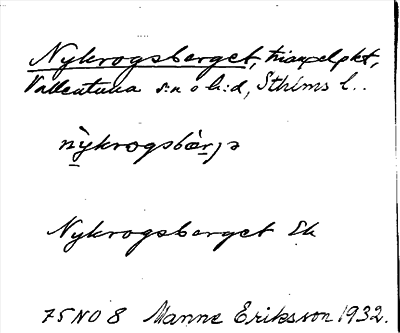 Nykrogsberget, triangelpkt,
Vallentuna s:n o h:d, Sthlms l..
nỳkrogsbær̯jə
Nykrogsberget Ek
75 NO 8 Manne Eriksson 1932.